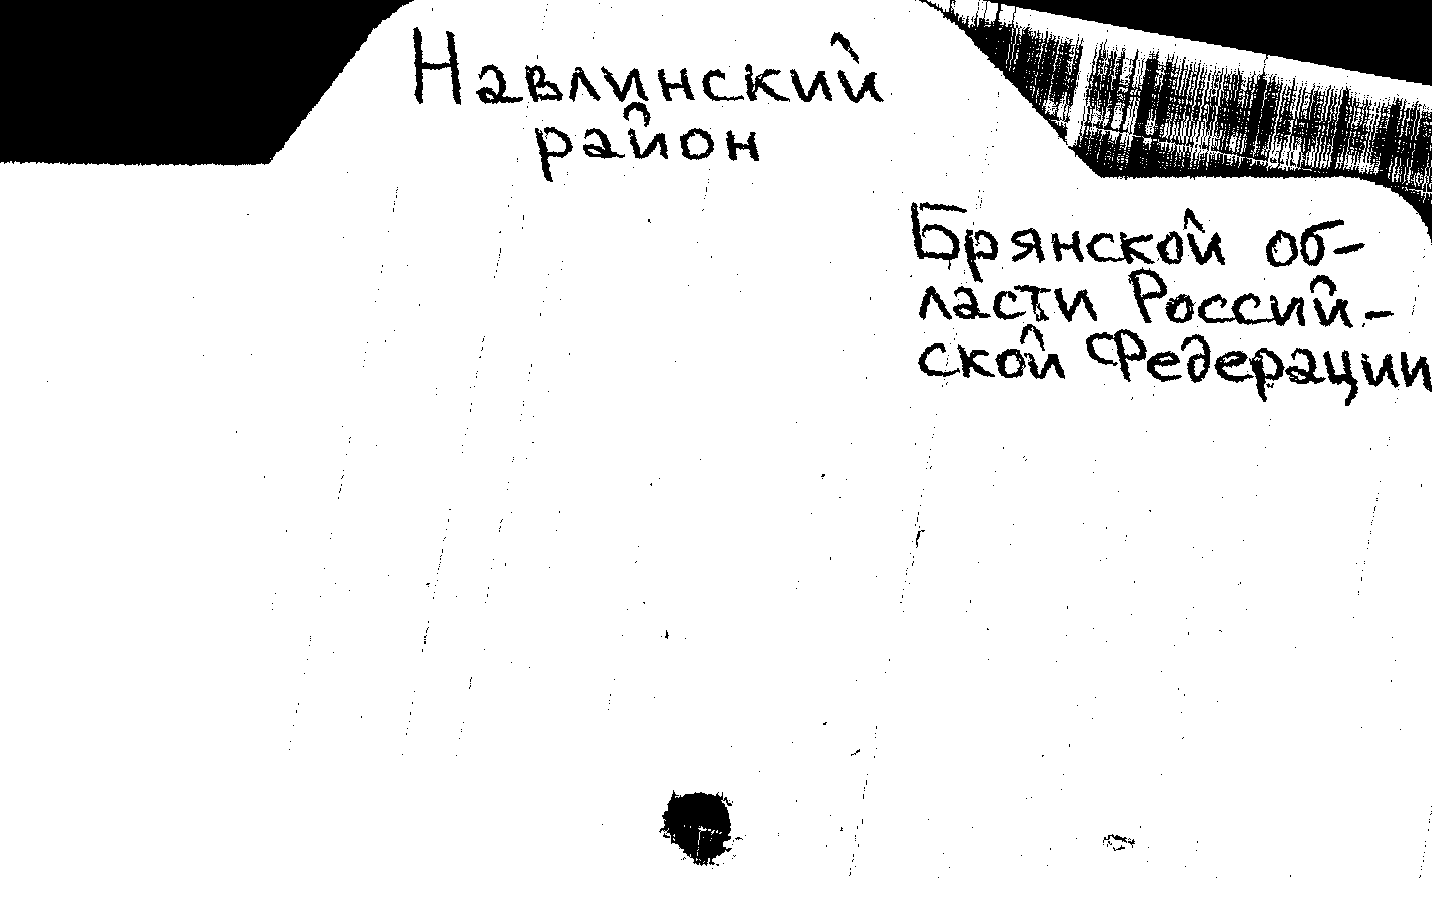 Навлинский
район
Брянской об-
ласти Россий-
ской Федерации